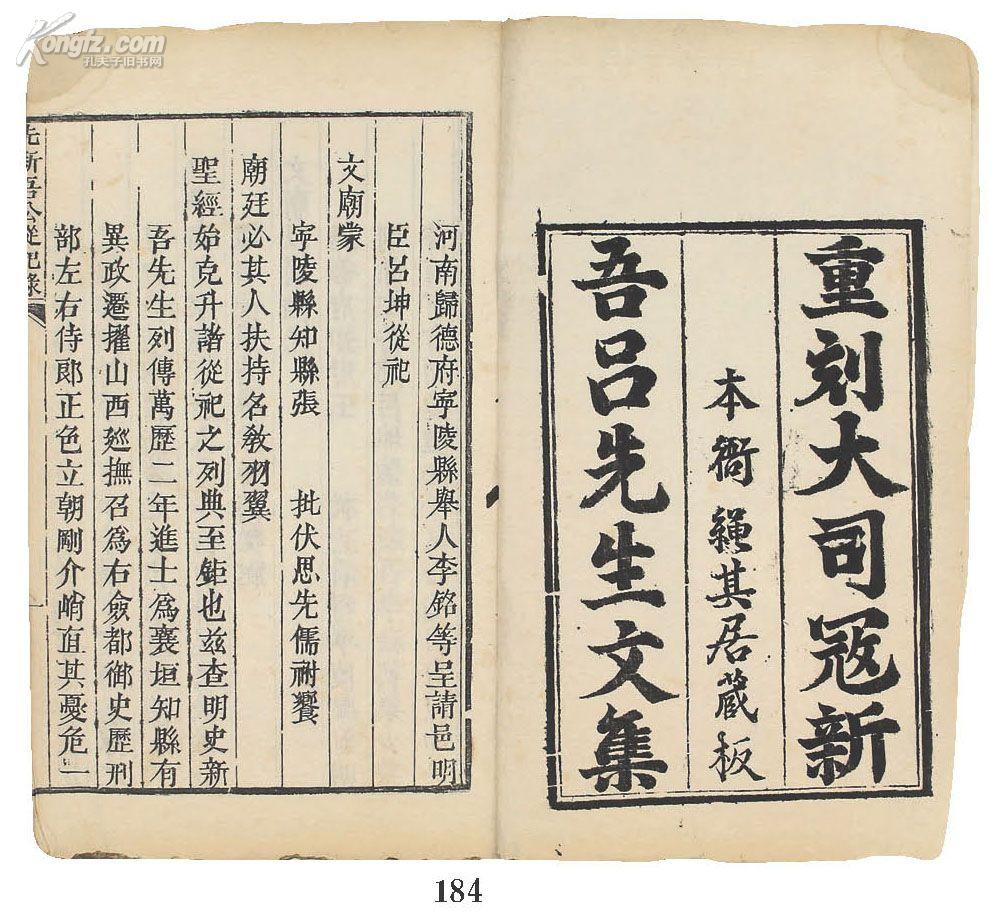 Kongfz.com
孔夫子旧书网
重刻大司冦新
本衙 繩其居藏板
吾吕先生文集
河南歸德府寧陵縣舉人李銘等呈請邑明
臣吕坤從祀
文廟蒙
寧陵縣知縣張 批伏思先儒祔饗
廟廷必其人扶持名敎羽翼
聖經始克升諸從祀之列典至鉅也兹查明史新
吾先生列傳萬歷二年進士爲襄垣知縣有
異政遷擢山西廵撫召爲右僉都御史歷刑
部左右侍郎正色立朝剛介峭直其憂危一
先新吾公從祀錄
一
184